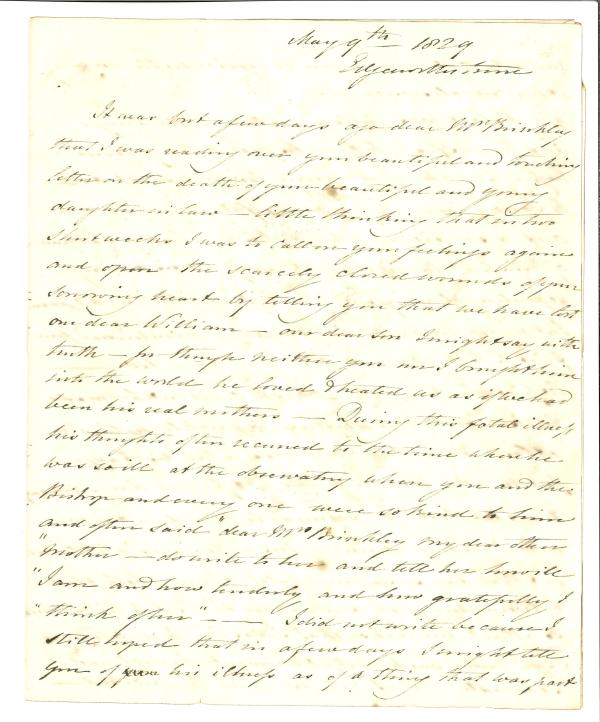 May 9th 1829
Edgeworthstown
It was but a few days ago dear Mrs Brinkley
that I was reading over your beautiful and touching
letter on the death of your beautiful and young
daughter in law – little thinking that in two
short weeks I was to call on your feelings again
and open the scarcely closed wounds of your
sorrowing heart by telling you that we have lost
our dear William – our dear son I might say with
truth – for though neither you nor I brought him
into the world he loved & treated us as if we had
been his real mothers – During this fatal illness
his thoughts often recurred to the time where he
was so ill at the observatory when you and the
Bishop and every one were so kind to him
and often said "dear Mrs Brinkley my dear other
"mother – do write to her and tell her how ill
"I am and how tenderly and how gratefully I
"think of her" – – I did not write because I
still hoped that in a few days I might tell
you of his illness as of a thing that was past